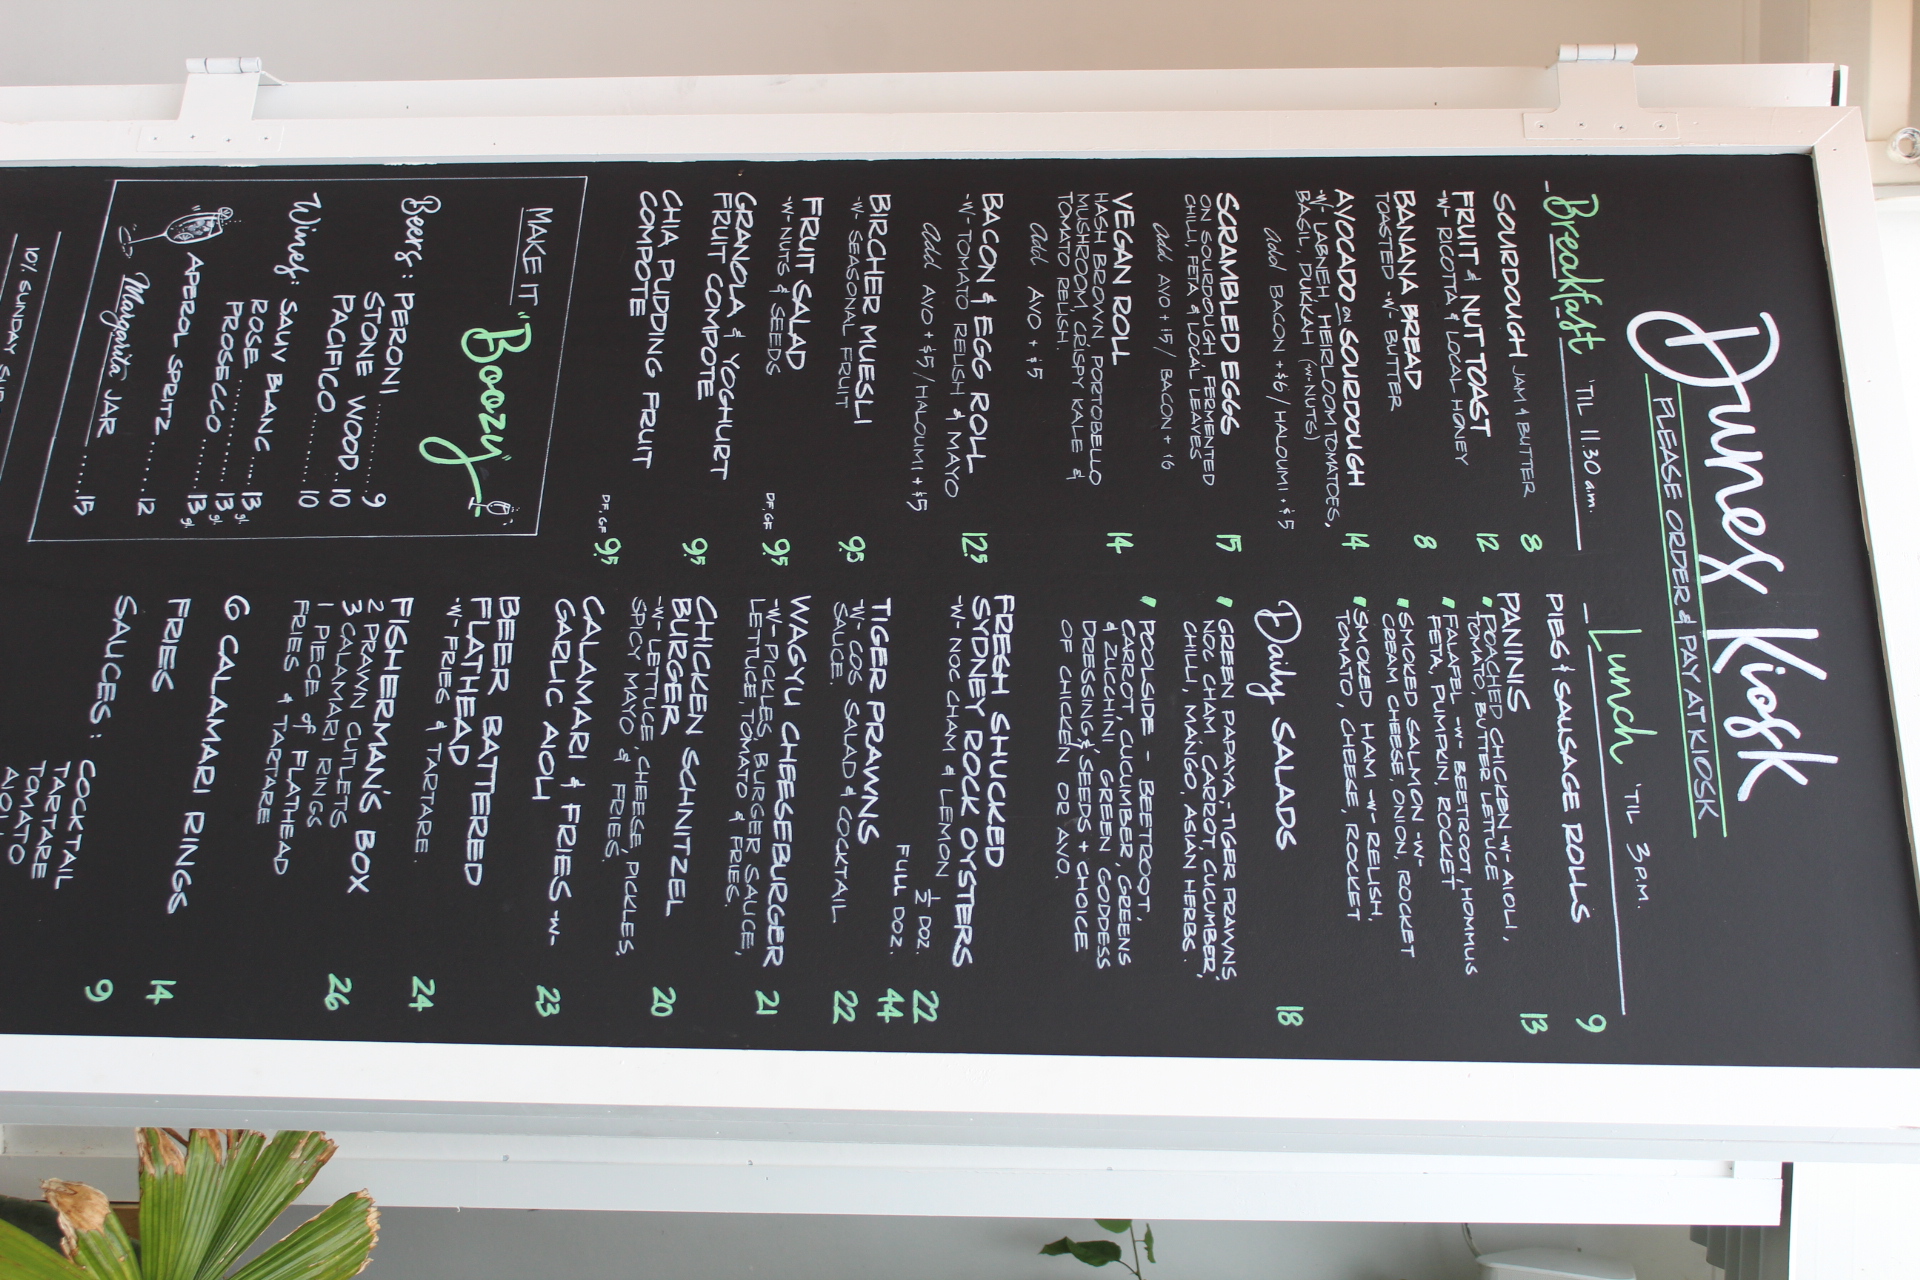 Dunes Kiosk
PLEASE ORDER & PAY AT KIOSK
Breakfast 'TIL 11.30 am.
SOURDOUGH JAM & BUTTER 8
FRUIT & NUT TOAST 12
-W- RICOTTA & LOCAL HONEY
BANANA BREAD 8
TOASTED -W- BUTTER
AVOCADO on SOURDOUGH 14
-W- LABNEH, HEIRLOOM TOMATOES,
BASIL, DUKKAH (W-NUTS)
Add BACON + $6 / HALOUMI + $5
SCRAMBLED EGGS 15
ON SOURDOUGH, FERMENTED
CHILLI, FETA & LOCAL LEAVES
Add AVO + $5 / BACON + $6
VEGAN ROLL 14
HASH BROWN, PORTOBELLO
MUSHROOM, CRISPY KALE &
TOMATO RELISH.
Add AVO + $5
BACON & EGG ROLL 12.5
-W- TOMATO RELISH & MAYO
Add AVO + $5 / HALOUMI + $5
BIRCHER MUESLI 9.5
-W- SEASONAL FRUIT
FRUIT SALAD DF, GF 9.5
-W- NUTS & SEEDS
GRANOLA & YOGHURT 9.5
FRUIT COMPOTE
CHIA PUDDING FRUIT
COMPOTE DF, GF 9.5
MAKE IT "Boozy"
Beers: PERONI ........ 9
STONE WOOD .. 10
PACIFICO ........ 10
Wines: SAUV BLANC .... 13 gl.
ROSE ............ 13 gl.
PROSECCO ...... 13 gl.
APEROL SPRITZ ....... 12
Margarita JAR ..... 15
10% SUNDAY SUR
Lunch 'TIL 3P.M.
PIES & SAUSAGE ROLLS 9
PANINIS 13
POACHED CHICKEN -W- AIOLI,
TOMATO, BUTTER LETTUCE
FALAFEL -W- BEETROOT, HOMMUS
FETA, PUMPKIN, ROCKET
SMOKED SALMON -W-
CREAM CHEESE, ONION, ROCKET
SMOKED HAM -W- RELISH,
TOMATO, CHEESE, ROCKET
Daily SALADS 18
GREEN PAPAYA, TIGER PRAWNS
NOC CHAM, CARROT, CUCUMBER,
CHILLI, MANGO, ASIAN HERBS.
POOLSIDE - BEETROOT,
CARROT, CUCUMBER, GREENS
& ZUCCHINI. GREEN GODDESS
DRESSING & SEEDS + CHOICE
OF CHICKEN OR AVO.
FRESH SHUCKED
SYDNEY ROCK OYSTERS
-W- NOC CHAM & LEMON ½ DOZ. 22
FULL DOZ. 44
TIGER PRAWNS 22
-W- COS SALAD & COCKTAIL
SAUCE.
WAGYU CHEESEBURGER 21
-W- PICKLES, BURGER SAUCE,
LETTUCE, TOMATO & FRIES.
CHICKEN SCHNITZEL
BURGER 20
-W- LETTUCE, CHEESE, PICKLES,
SPICY MAYO & FRIES.
CALAMARI & FRIES -W-
GARLIC AIOLI 23
BEER BATTERED
FLATHEAD
-W- FRIES & TARTARE. 24
FISHERMAN'S BOX
2 PRAWN CUTLETS
3 CALAMARI RINGS 26
1 PIECE of FLATHEAD
FRIES & TARTARE
6 CALAMARI RINGS
FRIES 14
SAUCES: COCKTAIL 9
TARTARE
TOMATO
AIOLI